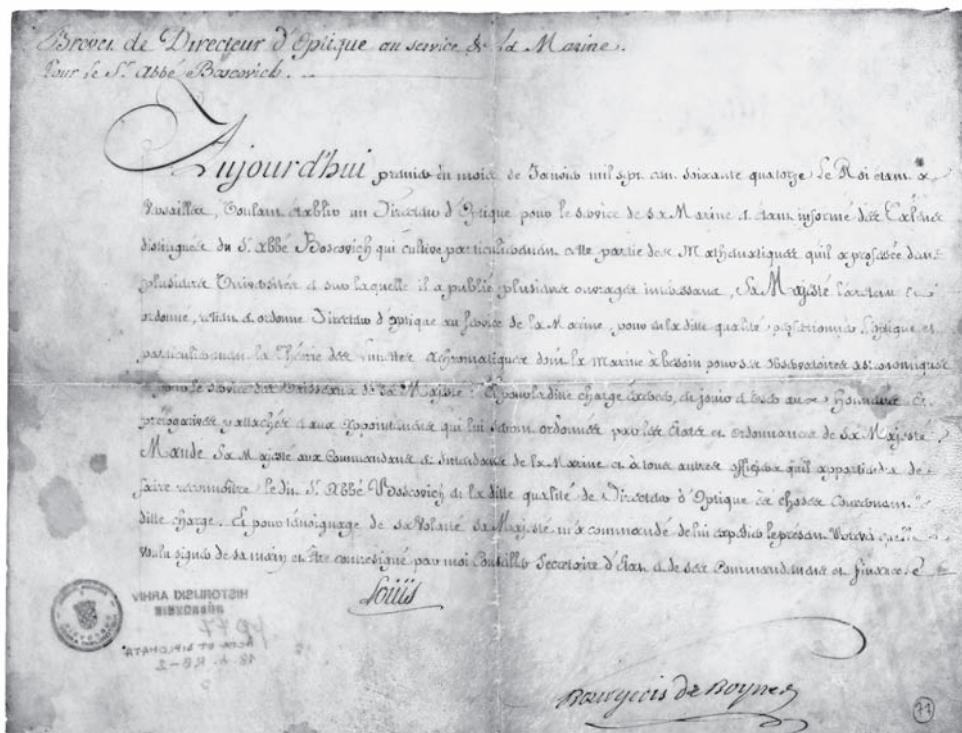 Brevet de Directeur d'Optique au service de la Marine.
Pour le S.r Abbé Boscovich.
Aujourd'hui premier du mois de Janvier mil sept cent soixante quatorze Le Roi étant a
Versailles, Voulant établir un Directeur d'Optique pour le service de sa Marine et étant informé des Talens
distingués du S.r Abbé Boscovich qui cultive particulierement cette partie des Mathematiques qu'il a professée dans
plusieurs Universités et sur laquelle il a publié plusieurs ouvrages interessans, Sa Majesté l'a retenu et
ordonné, retient et ordonne Directeur d'Optique au service de la Marine, pour en la ditte qualité perfectionner l'optique et
particulierement la Théorie des Lunettes Achromatiques dont la Marine à besoin pour ses observatoires astronomiques
pour le service des Vaisseaux de Sa Majesté. Et pour la ditte charge exercer, en jouir et user aux Honneurs et
prérogatives y attachés et aux Appointemens qui lui seront ordonnés par les Etats et ordonnances de Sa Majesté
Mande Sa Majesté aux Commandans et Intendans de la Marine et à tous autres officiers qu'il appartiendra de
faire reconnoître le dit S.r Abbé Boscovich en la ditte qualité de Directeur d'Optique ès choses concernant la
ditte charge. Et pour témoignage de sa Volonté Sa Majesté m'a commandé de lui expedier le présent Brevet qu'elle a
voulu signer de sa main et être contresigné par moi Conseiller Secretaire d'Etat et de ses Commandemens et finances.
Louis
HISTORIJSKI ARHIV
DUBROVNIK
77
ACTA ET DIPLOMATA
18. st. RB-2
Bourgeois de Boynes
77